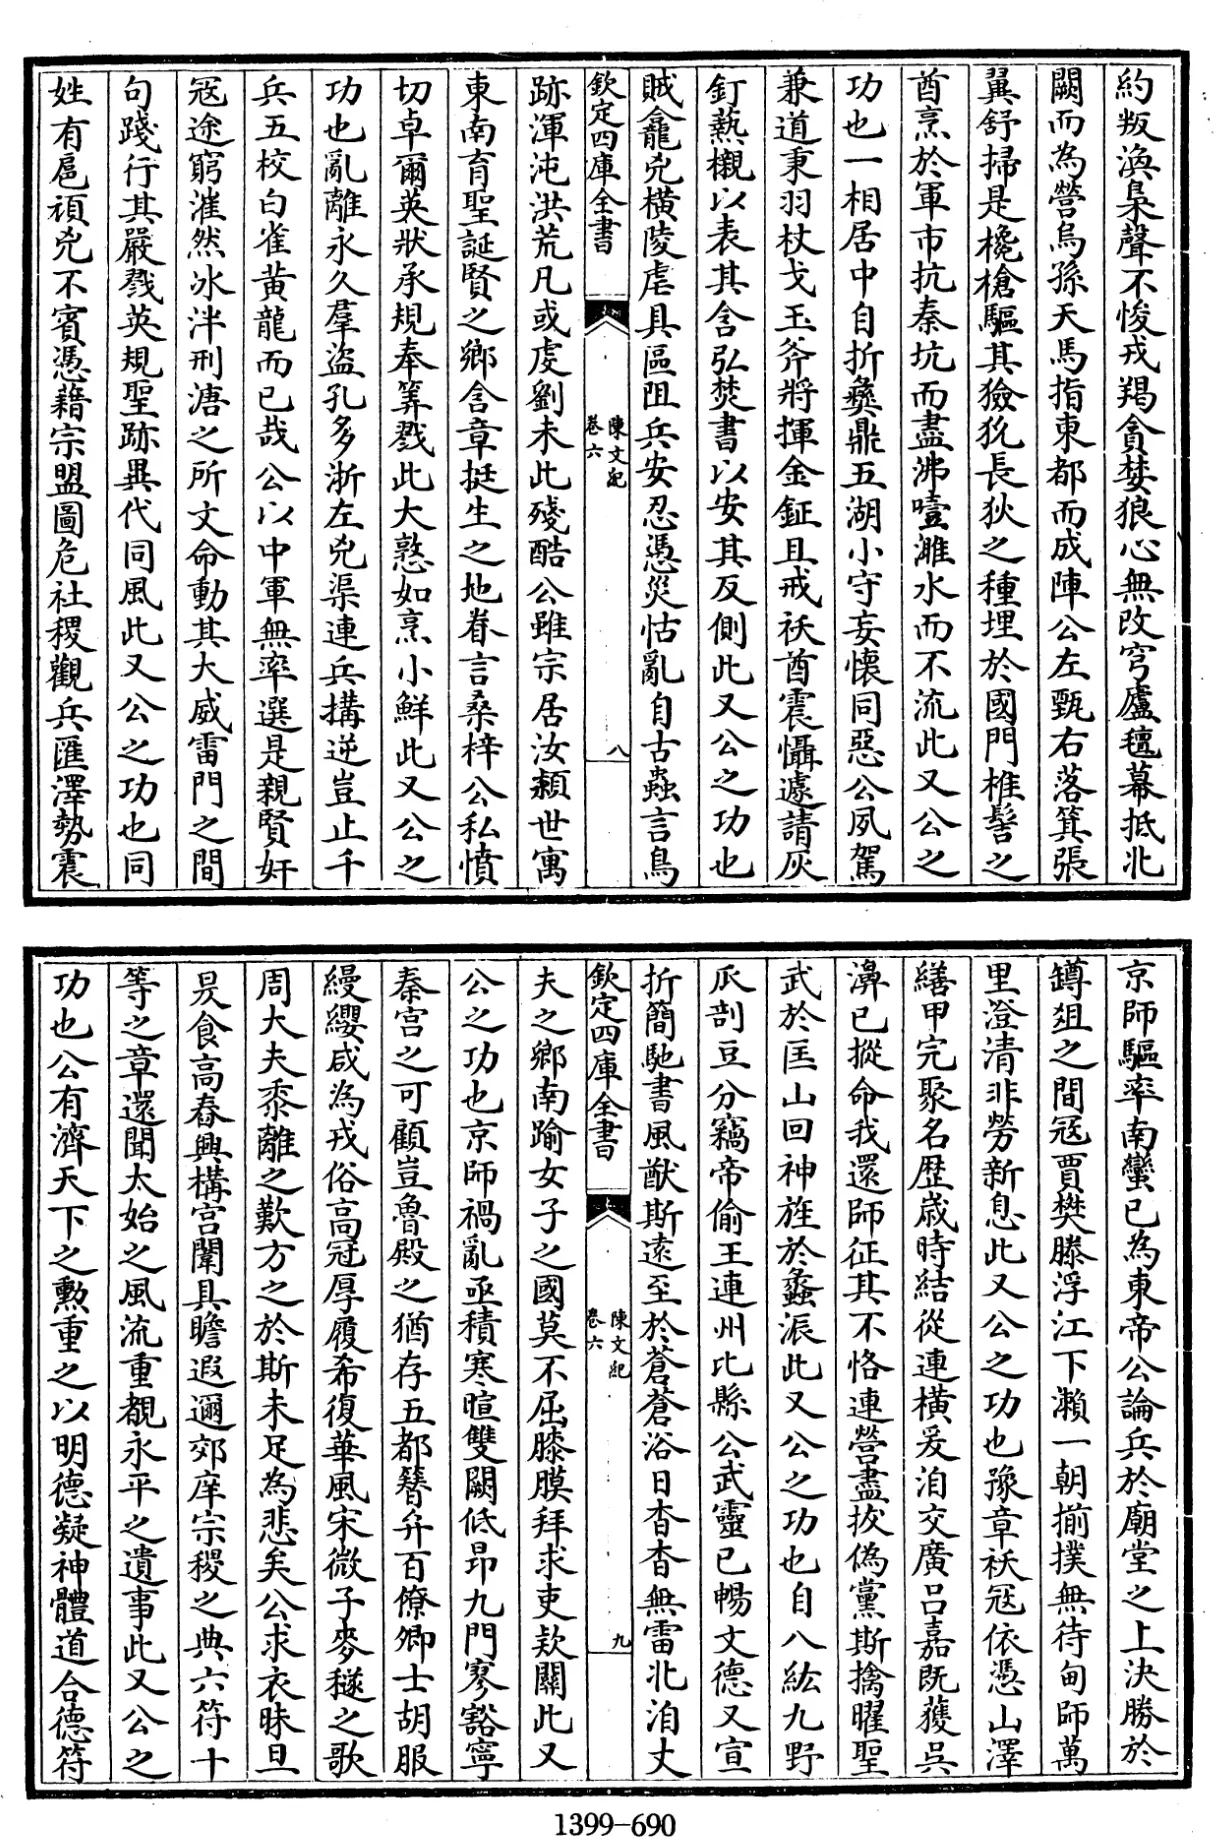 約叛渙梟聲不悛戎羯貪婪狼心無改穹廬氊幕抵北
闕而為營烏孫天馬指東都而成陣公左甄右落箕張
翼舒掃是欃槍驅其獫狁長狄之種埋於國門椎髻之
酋烹於軍市抗秦坑而盡沸噎濉水而不流此又公之
功也一相居中自折彝鼎五湖小守妄懷同惡公夙駕
兼道秉羽杖戈玉斧將揮金鉦且戒祅酋震懾遽請灰
釘爇櫬以表其含弘焚書以安其反側此又公之功也
賊龕兇橫陵虐具區阻兵安忍憑災怙亂自古蟲言鳥
欽定四庫全書
陳文紀
卷六
八
跡渾沌洪荒凡或虔劉未此殘酷公雖宗居汝潁世寓
東南育聖誕賢之鄉含章挺生之地眷言桑梓公私憤
切卓爾英狀承規奉筭戮此大憝如烹小鮮此又公之
功也亂離永久羣盜孔多浙左兇渠連兵搆逆豈止千
兵五校白雀黃龍而已哉公以中軍無率選是親賢奸
寇途窮漼然冰泮刑溏之所文命動其大威雷門之間
句踐行其嚴戮英規聖跡異代同風此又公之功也同
姓有扈頑兇不賓憑藉宗盟圖危社稷觀兵匯澤勢震
京師驅率南蠻已為東帝公論兵於廟堂之上決勝於
罇俎之間寇賈樊滕浮江下瀨一朝揃撲無待甸師萬
里澄清非勞新息此又公之功也豫章祅寇依憑山澤
繕甲完聚名歷歲時結從連橫爰洎交廣呂嘉既獲吳
濞已摐命我還師征其不恪連營盡拔偽黨斯擒曜聖
武於匡山回神旌於蠡派此又公之功也自八紘九野
瓜剖豆分竊帝偷王連州比縣公武靈已暢文德又宣
折簡馳書風猷斯遠至於蒼蒼浴日杳杳無雷北洎丈
欽定四庫全書
陳文紀
卷六
九
夫之鄉南踰女子之國莫不屈膝膜拜求吏款關此又
公之功也京師禍亂亟積寒暄雙闕低昂九門寥豁寧
秦宮之可顧豈魯殿之猶存五都簪弁百僚卿士胡服
縵纓咸為戎俗高冠厚履希復華風宋微子麥穟之歌
周大夫黍離之歎方之於斯未足為悲矣公求衣昧旦
昃食高舂興構宮闈具瞻遐邇郊庠宗稷之典六符十
等之章還聞太始之風流重覩永平之遺事此又公之
功也公有濟天下之勲重之以明德凝神體道合德符
1399-690